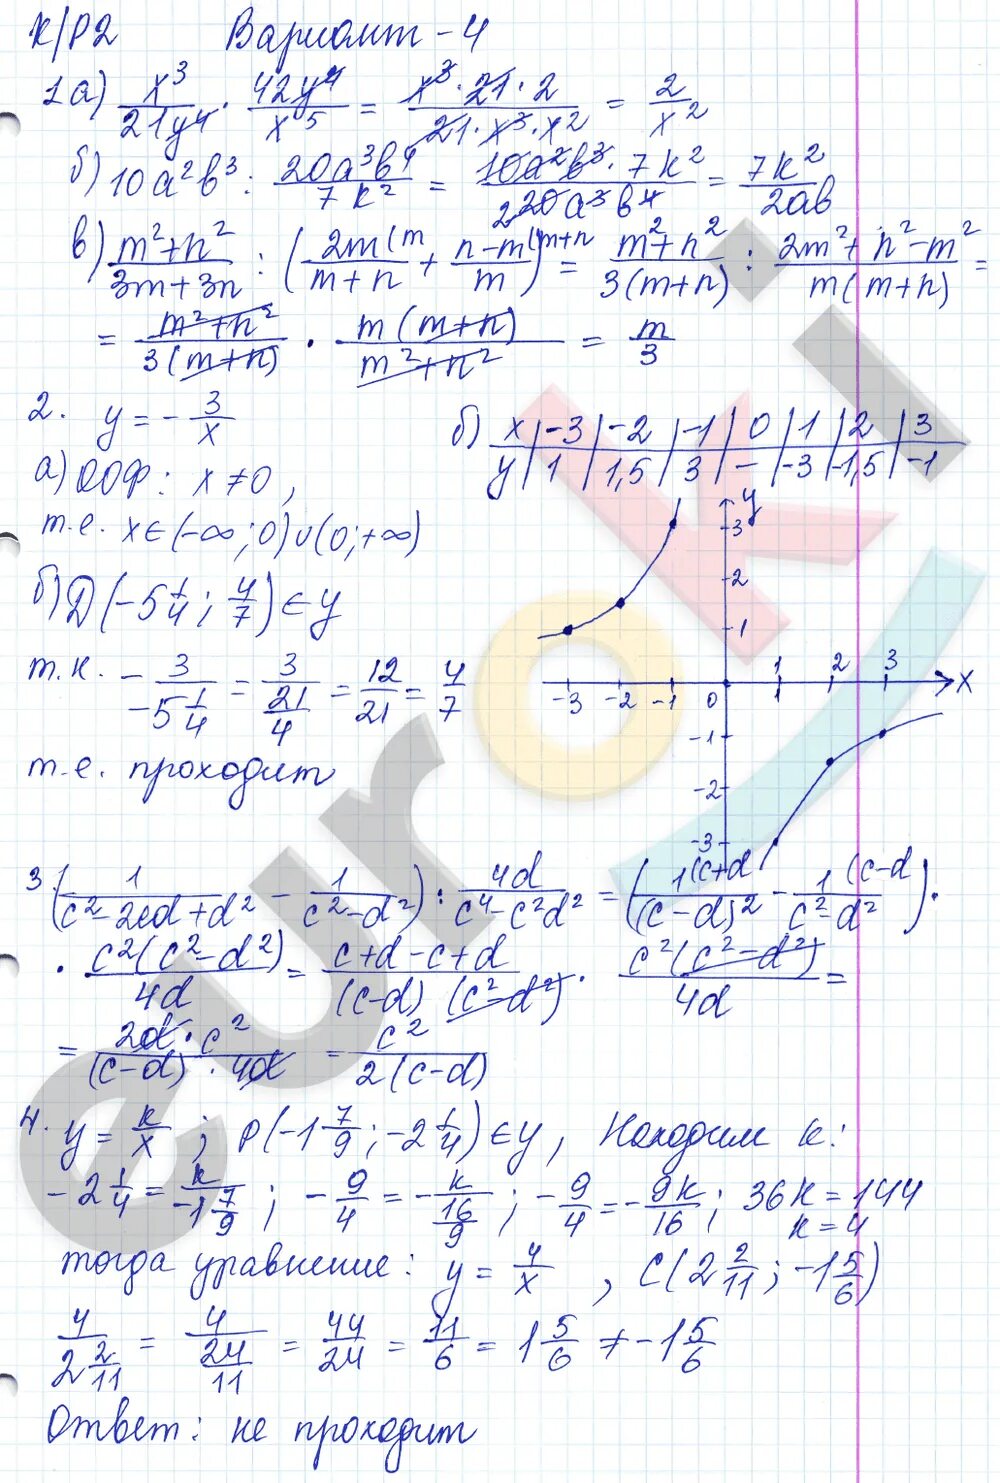 К/Р2 Вариант - 4
1 а) x³/21y⁴ · 42y⁴/x⁵ = x³ · 21 · 2/21 · x³ · x² = 2/x²
б) 10a²b³ : 20a³b⁴/7k² = 10a²b³ · 7k²/2 20a³b⁴ = 7k²/2ab
в) m²+n²/3m+3n : (2m(m/m+n + n-m(m+n/m) = m²+n²/3(m+n) : 2m²+n²-m²/m(m+n) =
= m²+n²/3(m+n) · m(m+n)/m²+n² = m/3
2. y = - 3/x
б) x | -3 | -2 | -1 | 0 | 1 | 2 | 3
y | 1 | 1,5 | 3 | - | -3 | -1,5 | -1
а) ООФ : x ≠ 0 ,
т.е. x ∈ (-∞; 0) ∪ (0; +∞)
б) D(-5 1/4 ; 4/7) ∈ y
т.к. - 3/-5 1/4 = 3/21/4 = 12/21 = 4/7
т.е. проходит
y
3
2
1
-3 -2 -1 0 1 2 3 x
-1
-2
-3
3. (1/c²-2cd+d² - 1/c²-d²) : 4d/c⁴-c²d² = (1(c+d/(c-d)² - 1(c-d/c²-d²) ·
· c²(c²-d²)/4d = c+d-c+d/(c-d)(c²-d²) · c²(c²-d²)/4d =
= 2d · c²/(c-d) · 4d = c²/2(c-d)
4. y = k/x ; P(-1 7/9 ; -2 1/4) ∈ y, Находим k :
-2 1/4 = k/-1 7/9 ; - 9/4 = - k/16/9 ; - 9/4 = - 9k/16 ; 36k = 144
k = 4
тогда уравнение : y = 4/x , C(2 2/11 ; -1 5/6)
4/2 2/11 = 4/24/11 = 44/24 = 11/6 = 1 5/6 ≠ -1 5/6
Ответ : не проходит
euroki